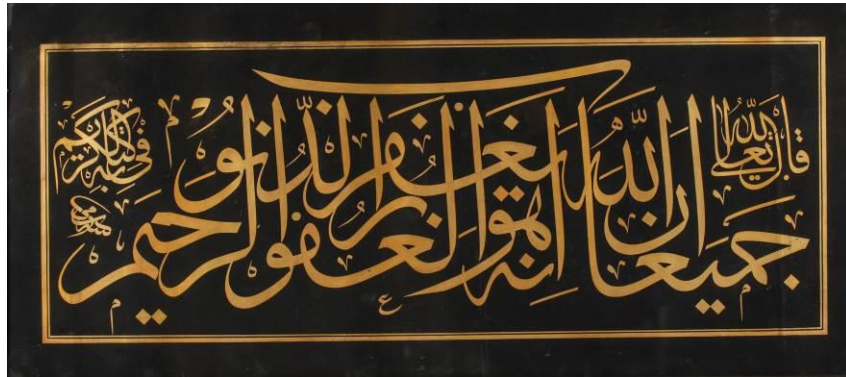 قال الله تعالى
ان الله يغفر الذنوب
جميعا انه هو الغفور الرحيم
فى كتابه الكريم